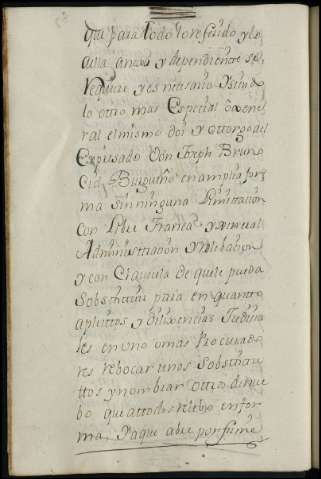 que para todo lo referido y lo
a ella anexo y dependiente se
requiere y es nesesario
lo otro mas Especial o Gene
ral el mismo doi y ottorgo al
Expresado Don Joseph Bruno
Cid, en amplia for
ma sin ninguna Limitacion
con Libre Franca y General
Administracion y Relebacion
y con Clausula de que le pueda
Sobstituir para en quanto
a pleittos y diligencias Judicia
les en uno o mas Procurado
res rebocar unos Sobstitu
ttos y nombrar ottros de nue
bo que a ttodos relebo en for
ma, Y a que abre por firme